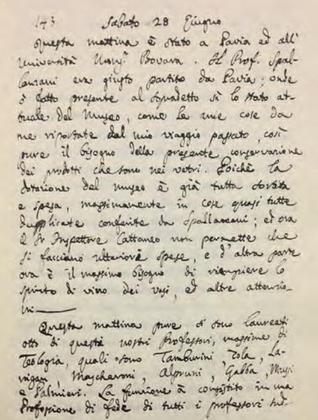 143 Sabato 28 Giugno
Questa mattina è stato a Pavia ed all'
Università Mons.r Bovara. Il Prof. Spal-
lanzani era giusto partito da Pavia; onde
si è fatto presente al sudetto sì lo stato at-
tuale del Museo, come le mie cose da
me riportate dal mio viaggio passato, così
pure il bisogno della presente conservazione
dei prodotti che sono nei vetri. Poichè la
dotazione del museo è già tutta
e spesa, massimamente in cose quasi tutte
duplicate conferite da Spallanzani; ed ora
il Sr Inspettore Cattaneo non permette che
si facciano ulteriori spese, e d'altra parte
ora è il massimo bisogno di riempiere lo
spirito di vino dei vasi, ed altre
Questa mattina pure si sono laureati
otto di questi nostri Professori, massime di
Teologia, quali sono Tamburini Zola,
Mascheroni, Alpruni, Gabba,
e Palmieri. La funzione è consistito in una
Professione di fede di tutti i professori